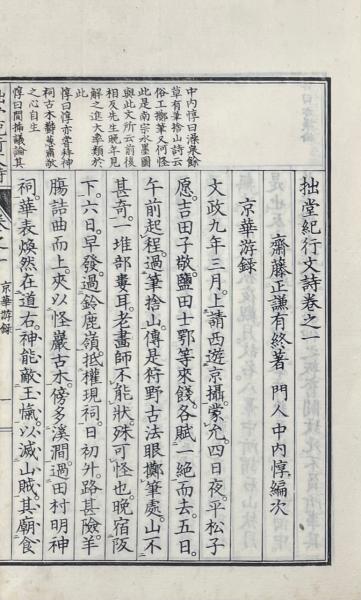 中內惇曰澡泉餘
草有筆捨山詩云
俗工擲筆又何怪
此是南宗水墨圖
與此文所云前後
相反先生晚年見
解之進大率類於
此
惇曰惇亦嘗拜神
祠古木鬱蒼肅敬
之心自生
惇曰間插議論其
拙堂紀行文詩卷之一
齋藤正謙有終著 門人中內惇編次
京華游錄
文政九年三月。上請西遊京攝。蒙允。四日夜。平松子
愿。吉田子敬。鹽田士鄂等來餞。各賦一絕而去。五日。
午前起程。過筆捨山。傳是狩野古法眼擲筆處。山不
甚奇。一堆部婁耳。老畫師不能狀。殊可怪也。晚宿阪
下。六日。早發。過鈴鹿嶺。抵權現祠。日初升。路甚險。羊
腸詰曲而上。夾以怪巖古木。傍多溪澗。過田村明神
祠。華表煥然在道右。神能敵王愾。以滅山賊。其廟食
京華游錄